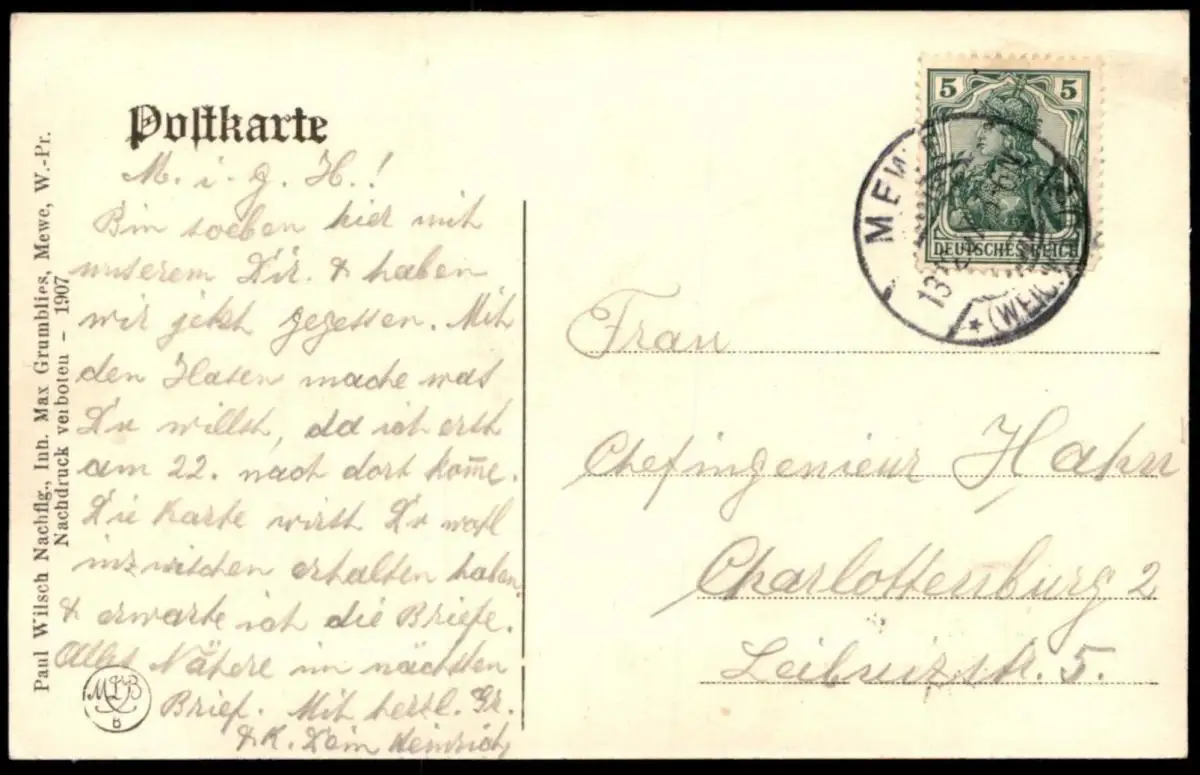 Postkarte
M. i. g. H.!
Bin soeben hier mit
unserem Dir. & haben
wir jetzt gegessen. Mit
den Hasen mache was
Du willst, da ich erst
am 22. nach dort kom̅e.
Die Karte wirst Du wohl
inzwischen erhalten haben
& erwarte ich die Briefe.
Alles Nähere im nächsten
Brief. Mit herzl. Gr.
& K. Dein Heinrich
Paul Wilsch Nachflg., Inh. Max Grumblies, Mewe, W.-Pr.
Nachdruck verboten - 1907
5 5
DEUTSCHES REICH
MEWE
13
* (WEICHSEL)
Frau
Chefingenieur Hahn
Charlottenburg 2
Leibnizstr. 5.
B